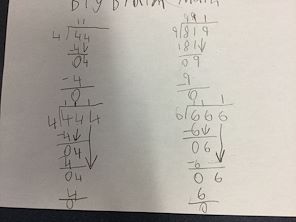 Big Brain Math
11
4)44
-4↓
04
-4
0
9)819
181↓
09
9
0
111
4)444
-4↓
04
4
04
4
0
1 1
6)666
-6↓
06
-6
0 6
6
0